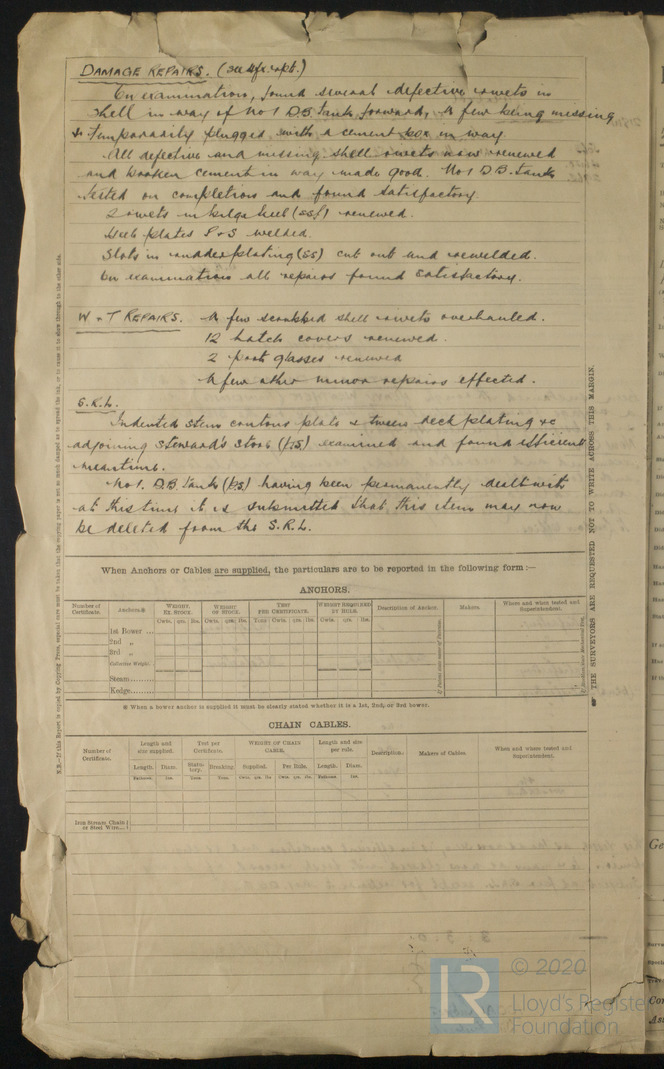 DAMAGE REPAIRS. (See Afx. rpt.)
On examination, found several defective rivets in
shell in way of No 1 D.B. Tank forward, A few being missing
& temporarily plugged with a cement box in way.
All defective and missing shell rivets now renewed
and broken cement in way made good. No 1 D.B. Tank
tested on completion and found satisfactory.
2 rivets in bilge keel (SS) renewed.
Heel plates P & S welded.
Slots in rudder plating (SS) cut out and rewelded.
On examination all repairs found satisfactory.
W & T REPAIRS. A few scrubbed shell rivets overhauled.
12 hatch covers renewed.
2 port glasses renewed
A few other minor repairs effected.
S.R.L.
Indented stem contour plate & tween deck plating &c
adjoining steward's store (P.S) examined and found efficient
meantime.
No 1. D.B. Tank (P.S) having been permanently dealt with
at this time it is submitted that this item may now
be deleted from the S.R.L.
When Anchors or Cables are supplied, the particulars are to be reported in the following form :—
ANCHORS.
Number of Certificate. Anchors※ WEIGHT. EX STOCK. WEIGHT OF STOCK. TEST PER CERTIFICATE. WEIGHT REQUIRED BY RULE. Description of Anchor. Makers. Where and when tested and Superintendent.
Cwts. qrs. lbs. Cwts. qrs. lbs. Tons Cwts. qrs. lbs. Cwts. qrs. lbs.
1st Bower ...
2nd „
3rd „
Collective Weight.
Stream.........
Kedge.........
※ When a bower anchor is supplied it must be clearly stated whether it is a 1st, 2nd, or 3rd bower.
CHAIN CABLES.
Number of Certificate. Length and size supplied. Test per Certificate. WEIGHT OF CHAIN CABLE. Length and size per rule. Description. Makers of Cables. When and where tested and Superintendent.
Length. Diam. Statutory. Breaking. Supplied. Per Rule. Length. Diam.
Fathoms. Ins. Tons. Tons. Cwts. qrs. lbs. Cwts. qrs. lbs. Fathoms. Ins.
Iron Stream Chain
or Steel Wire....
THE SURVEYORS ARE REQUESTED NOT TO WRITE ACROSS THIS MARGIN.
LR
© 2020
Lloyd's Register
Foundation